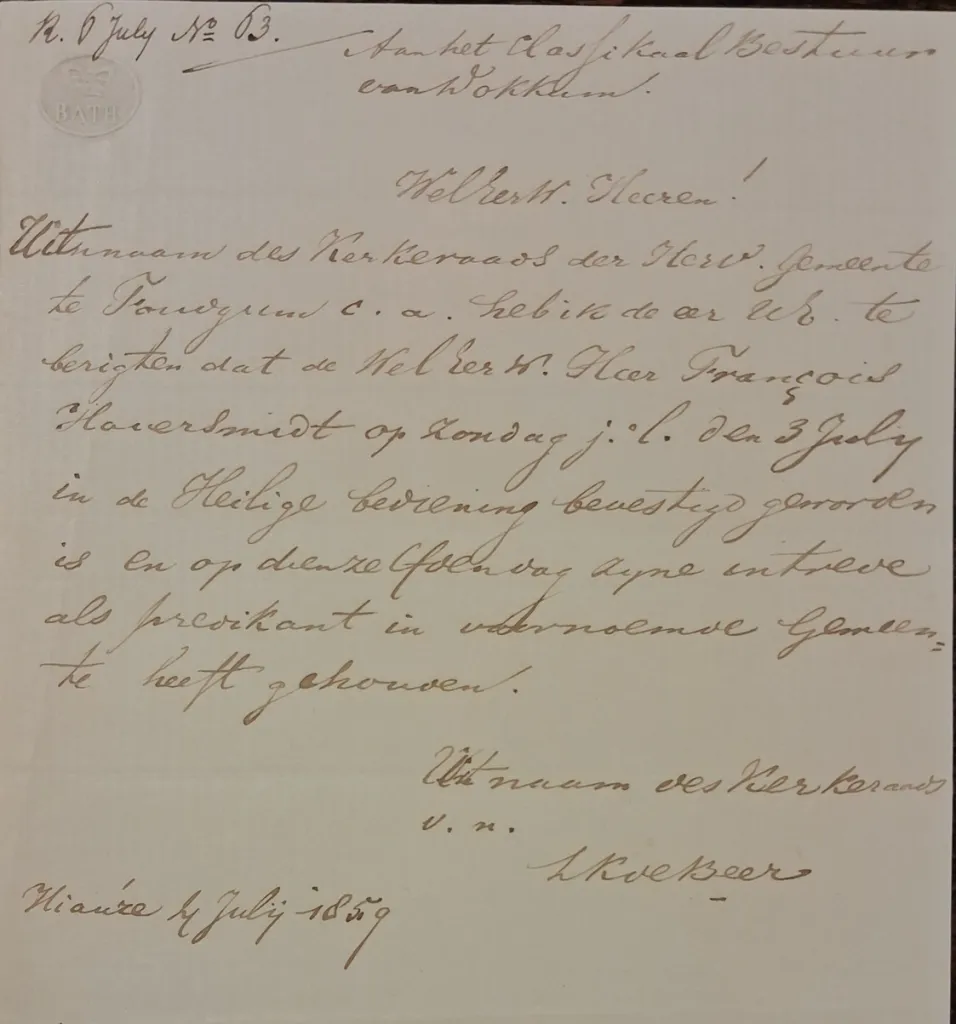 R. 6 July No 63.
Aan het Classikaal Bestuur
van Dokkum.
BATH
WelEerW. Heeren!
Uit naam des Kerkeraads der Herv. Gemeente
te Foudgum c. a. heb ik de eer UE. te
berigten dat de WelEerW. Heer François
Haverschmidt op Zondag j.l. den 3 July
in de Heilige bediening bevestigd geworden
is en op dienzelfden dag zyne intrede
als predikant in voornoemde Gemeen=
te heeft gehouden.
Uit naam des Kerkeraads
v. n.
de Beer
Hiaure 4 July 1859